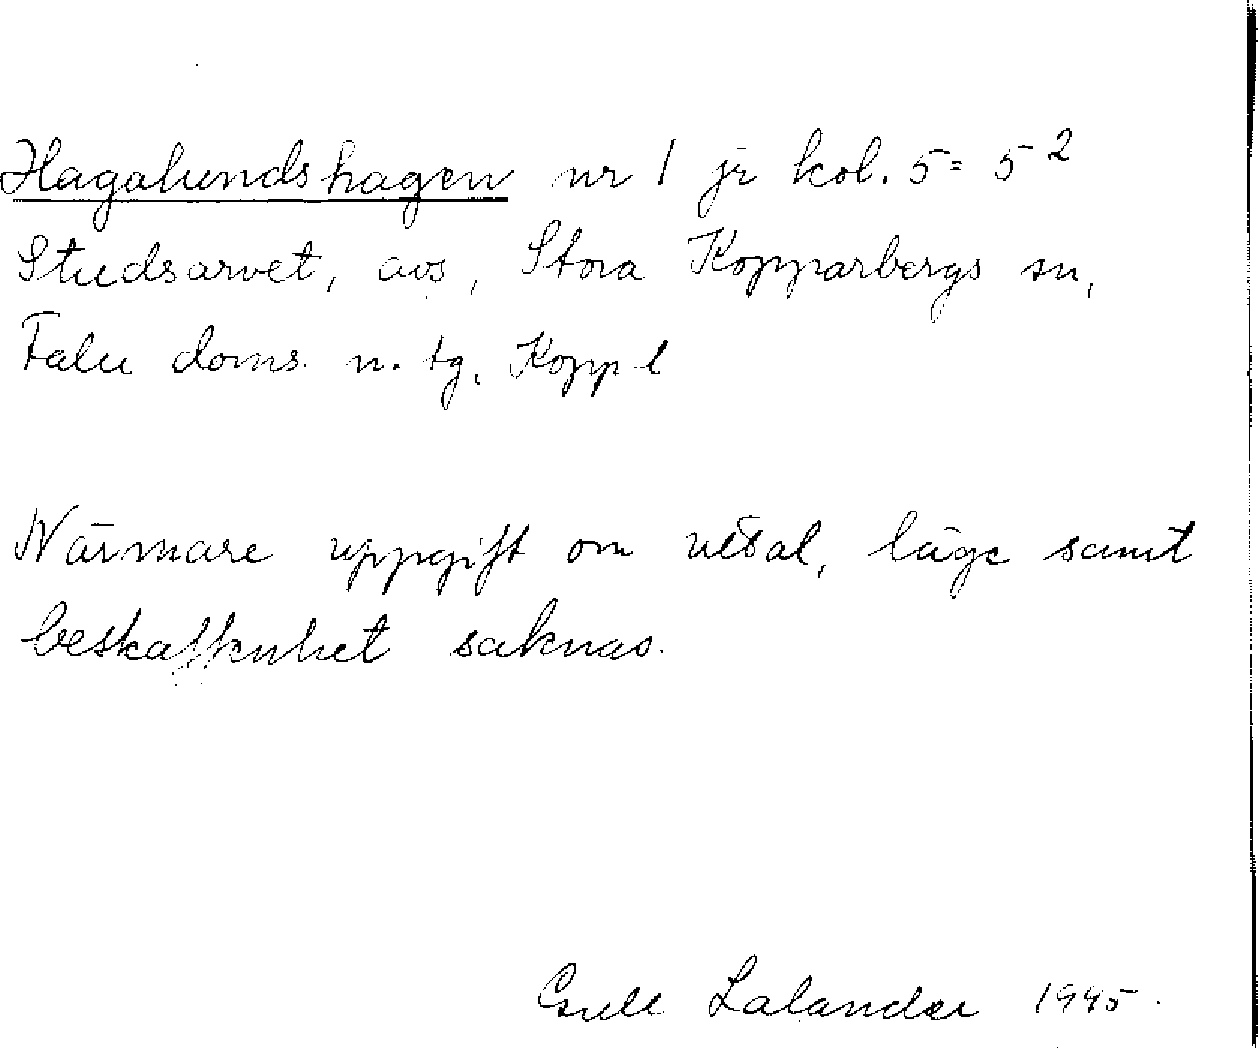 Hagalundshagen nr 1 jr kol. 5 = 5²
Studsarvet, avs, Stora Kopparbergs sn,
Falu doms. n. tg, Kopp l
Närmare uppgift om uttal, läge samt
beskaffenhet saknas.
Lalander 1945.